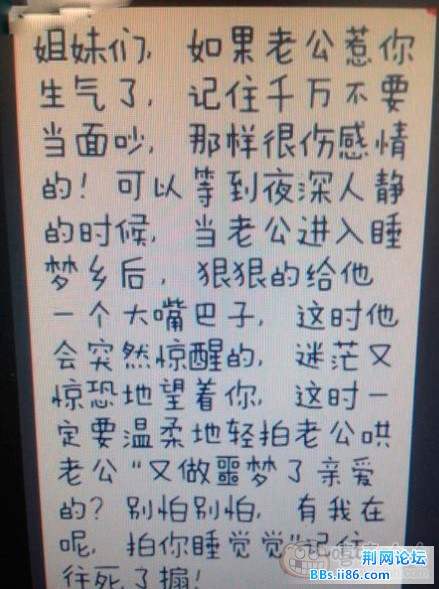 姐妹们, 如果老公惹你
生气了, 记住千万不要
当面吵, 那样很伤感情
的! 可以等到夜深人静
的时候, 当老公进入睡
梦乡后, 狠狠的给他
一个大嘴巴子, 这时他
会突然惊醒的, 迷茫又
惊恐地望着你, 这时一
定要温柔地轻拍老公哄
老公“又做噩梦了亲爱
的? 别怕别怕, 有我在
呢, 拍你睡觉觉”记住
往死了搧!
荆网论坛
BBs.ii86.com